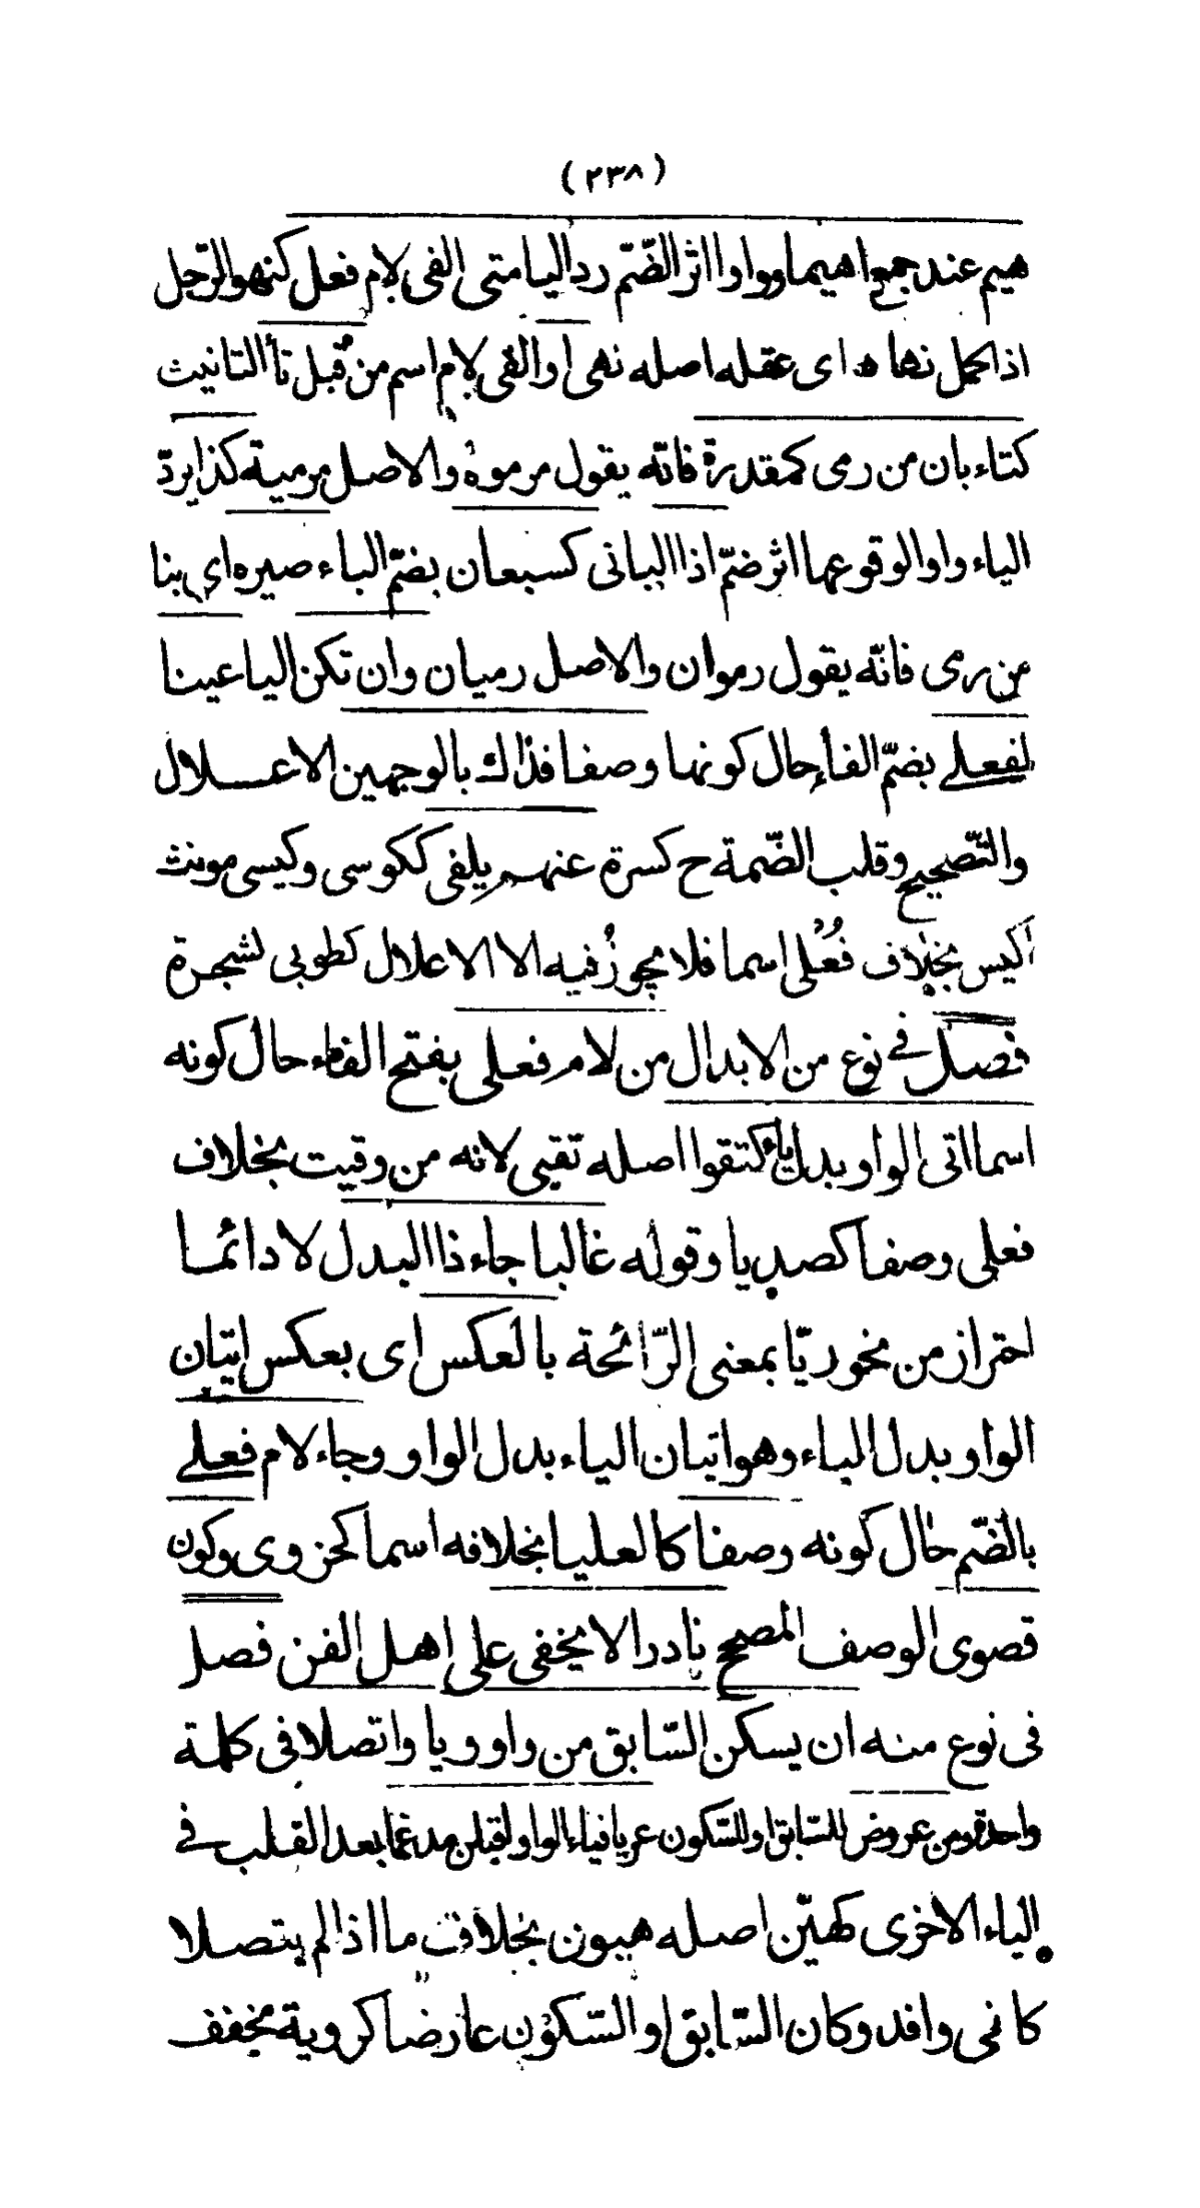 (٢٣٨)
هيم عند جمع اهيما وواوا اثر الضّمّ رد اليا متى الفى لام فعل كنهو الرّجل
اذا كمل نهاه اى عقله اصله نهى او الفى لام اسم من قبل تأ التانيث
كتاء بان من رمى كمقدرة فانّه يقول مرموة والاصل مرمية كذا يردّ
الياء واوا لوقوعها اثر ضمّ اذا البانى كسبعان بضمّ الباء صيره اى بنا
من رمى فانّه يقول رموان والاصل رميان وان تكن اليا عينا
لفعلى بضمّ الفأ حال كونها وصفا فذاك بالوجهين الاعلال
والتّصحيح وقلب الضّمة ح كسرة عنهم يلفى ككوسى وكيسى مونث
اكيس بخلاف فُعْلى اسما فلا يجوز فيه الا الاعلال كطوبى لشجرة
فصل فى نوع من الابدال من لام فعلى بفتح الفاء حال كونه
اسما اتى الواو بدل ياء كتقوا اصله تقيى لانه من وقيت بخلاف
فعلى وصفا كصديا وقوله غالبا جاء ذا البدل لا دائما
احتراز من نحو ريّا بمعنى الرّائحة بالعكس اى بعكس اتيان
الواو بدل الياء وهو اتيان الياء بدل الواو وجاء لام فعلى
بالضّم حال كونه وصفا كالعليا بخلافه اسما كحزوى وكون
قصوى الوصف المصحح نادرا لا يخفى على اهل الفن فصل
فى نوع منه ان يسكن السّابق من واو ويا واتصلا فى كلمة
واحدة ومن عروض للسّابق او للسّكون عريا فياء الواو اقلبن مدغما بعد القلب فى
الياء الاخرى كهيّن اصله هيون بخلاف ما اذا لم يتصلا
كانى وافد وكان السّابق او السّكون عارضا كروية مخفف